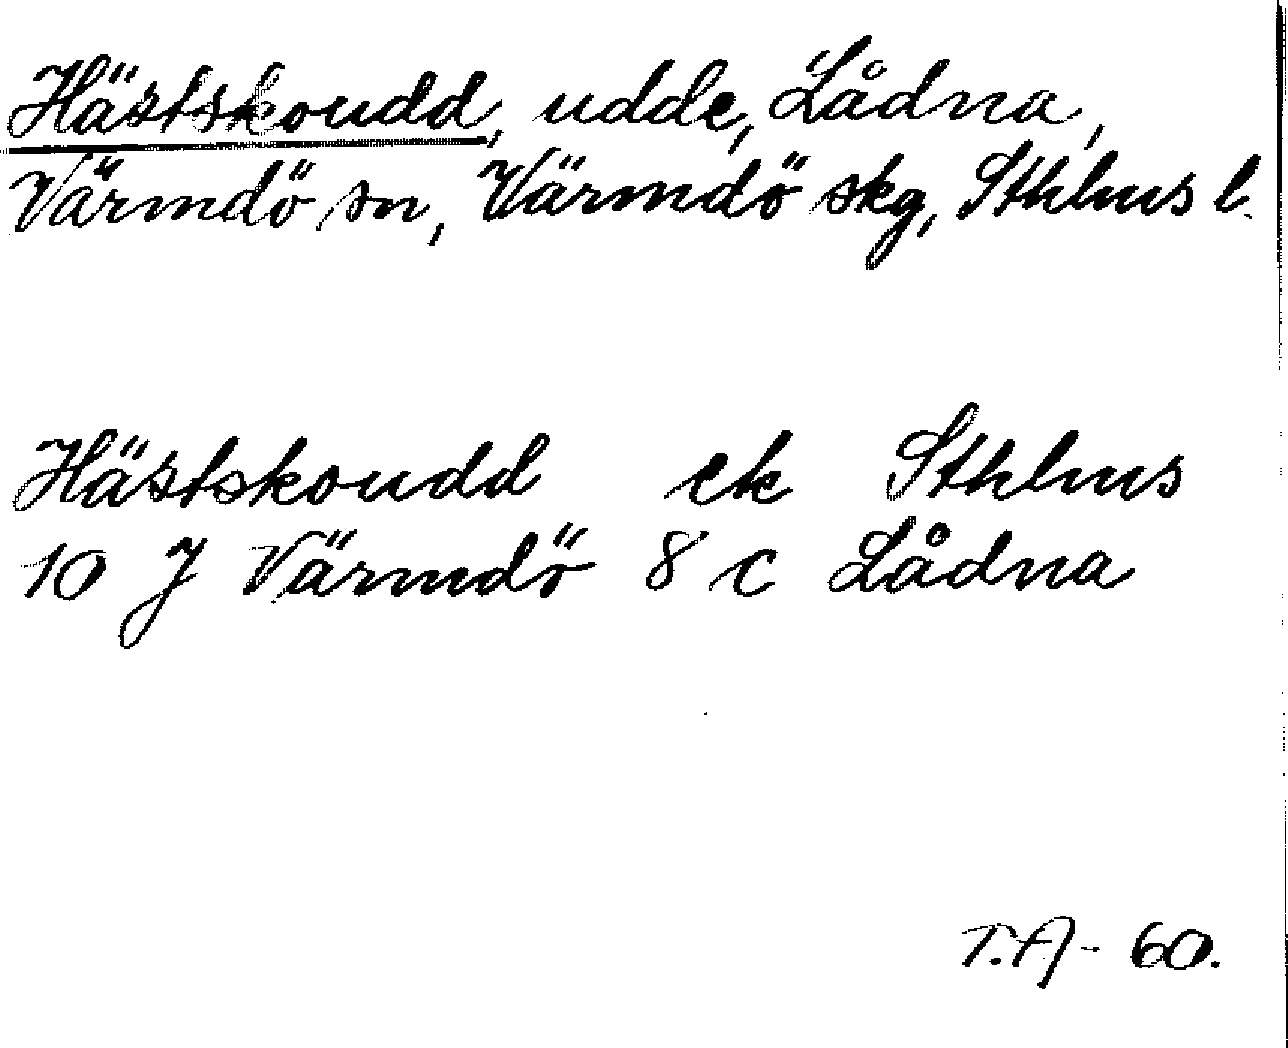 Hästskoudd, udde, Lådna,
Värmdö sn, Värmdö skg, Sthlms l.
Hästskoudd ek Sthlms
10 J Värmdö 8 c Lådna
T.A- 60.